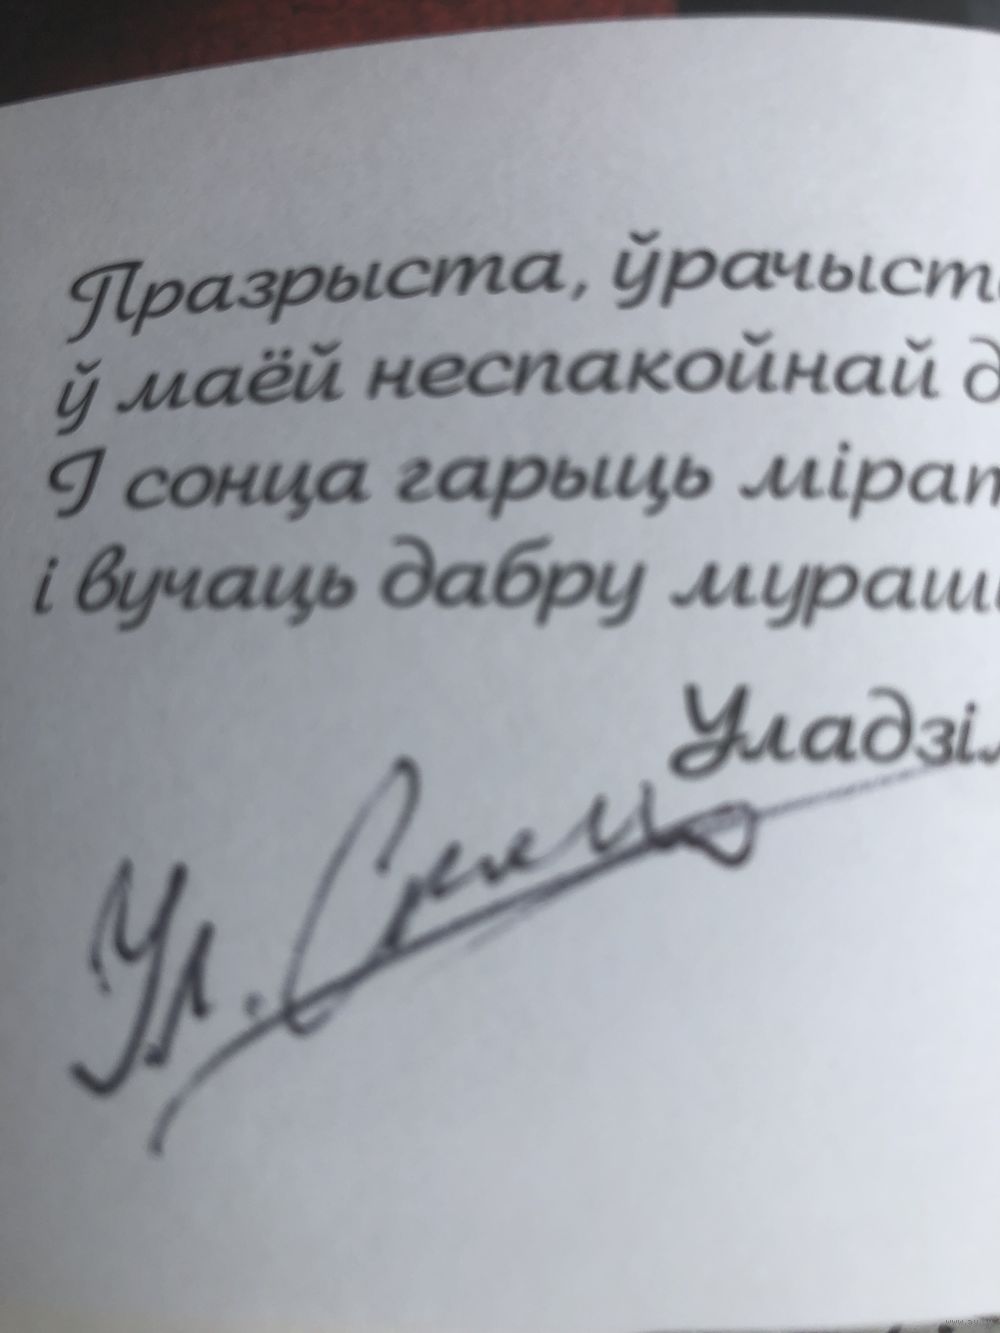 Празрыста, ўрачыст
ў маёй неспакойнай д
І сонца гарыць міра
і вучаць дабру мураш
Уладзі
Ул.